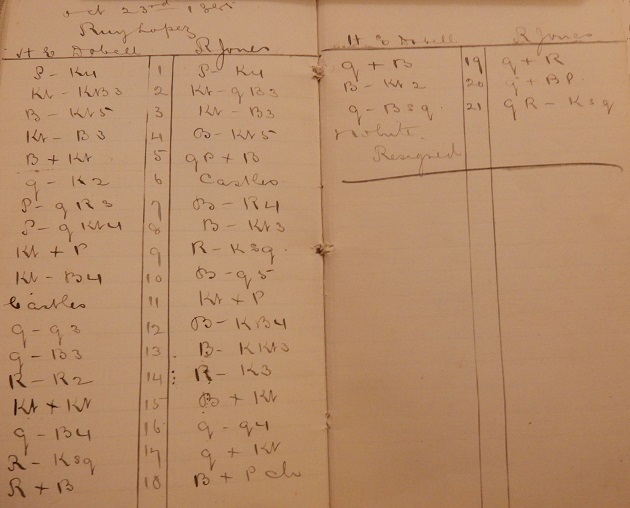 Oct 23rd 1885
Ruy Lopez
H E Dobell R Jones
P - K4 1 P - K4
Kt - KB3 2 Kt - qB3
B - Kt5 3 Kt - B3
Kt - B3 4 B - Kt5
B + Kt 5 qP + B
q - K2 6 Castles
P - qR3 7 B - R4
P - qKt4 8 B - Kt3
Kt + P 9 R - Ksq.
Kt - B4 10 B - q5
Castles 11 Kt + P
q - q3 12 B - KB4
q - B3 13 B - KKt3
R - R2 14 R - K3
Kt + Kt 15 B + Kt
q - B4 16 q - q4
R - Ksq 17 q + Kt
R + B 18 B + P ch
H E Dobell R Jones
q + B 19 q + R
B - Kt2 20 q + BP
q - Bsq. 21 qR - Ksq
White
Resigned